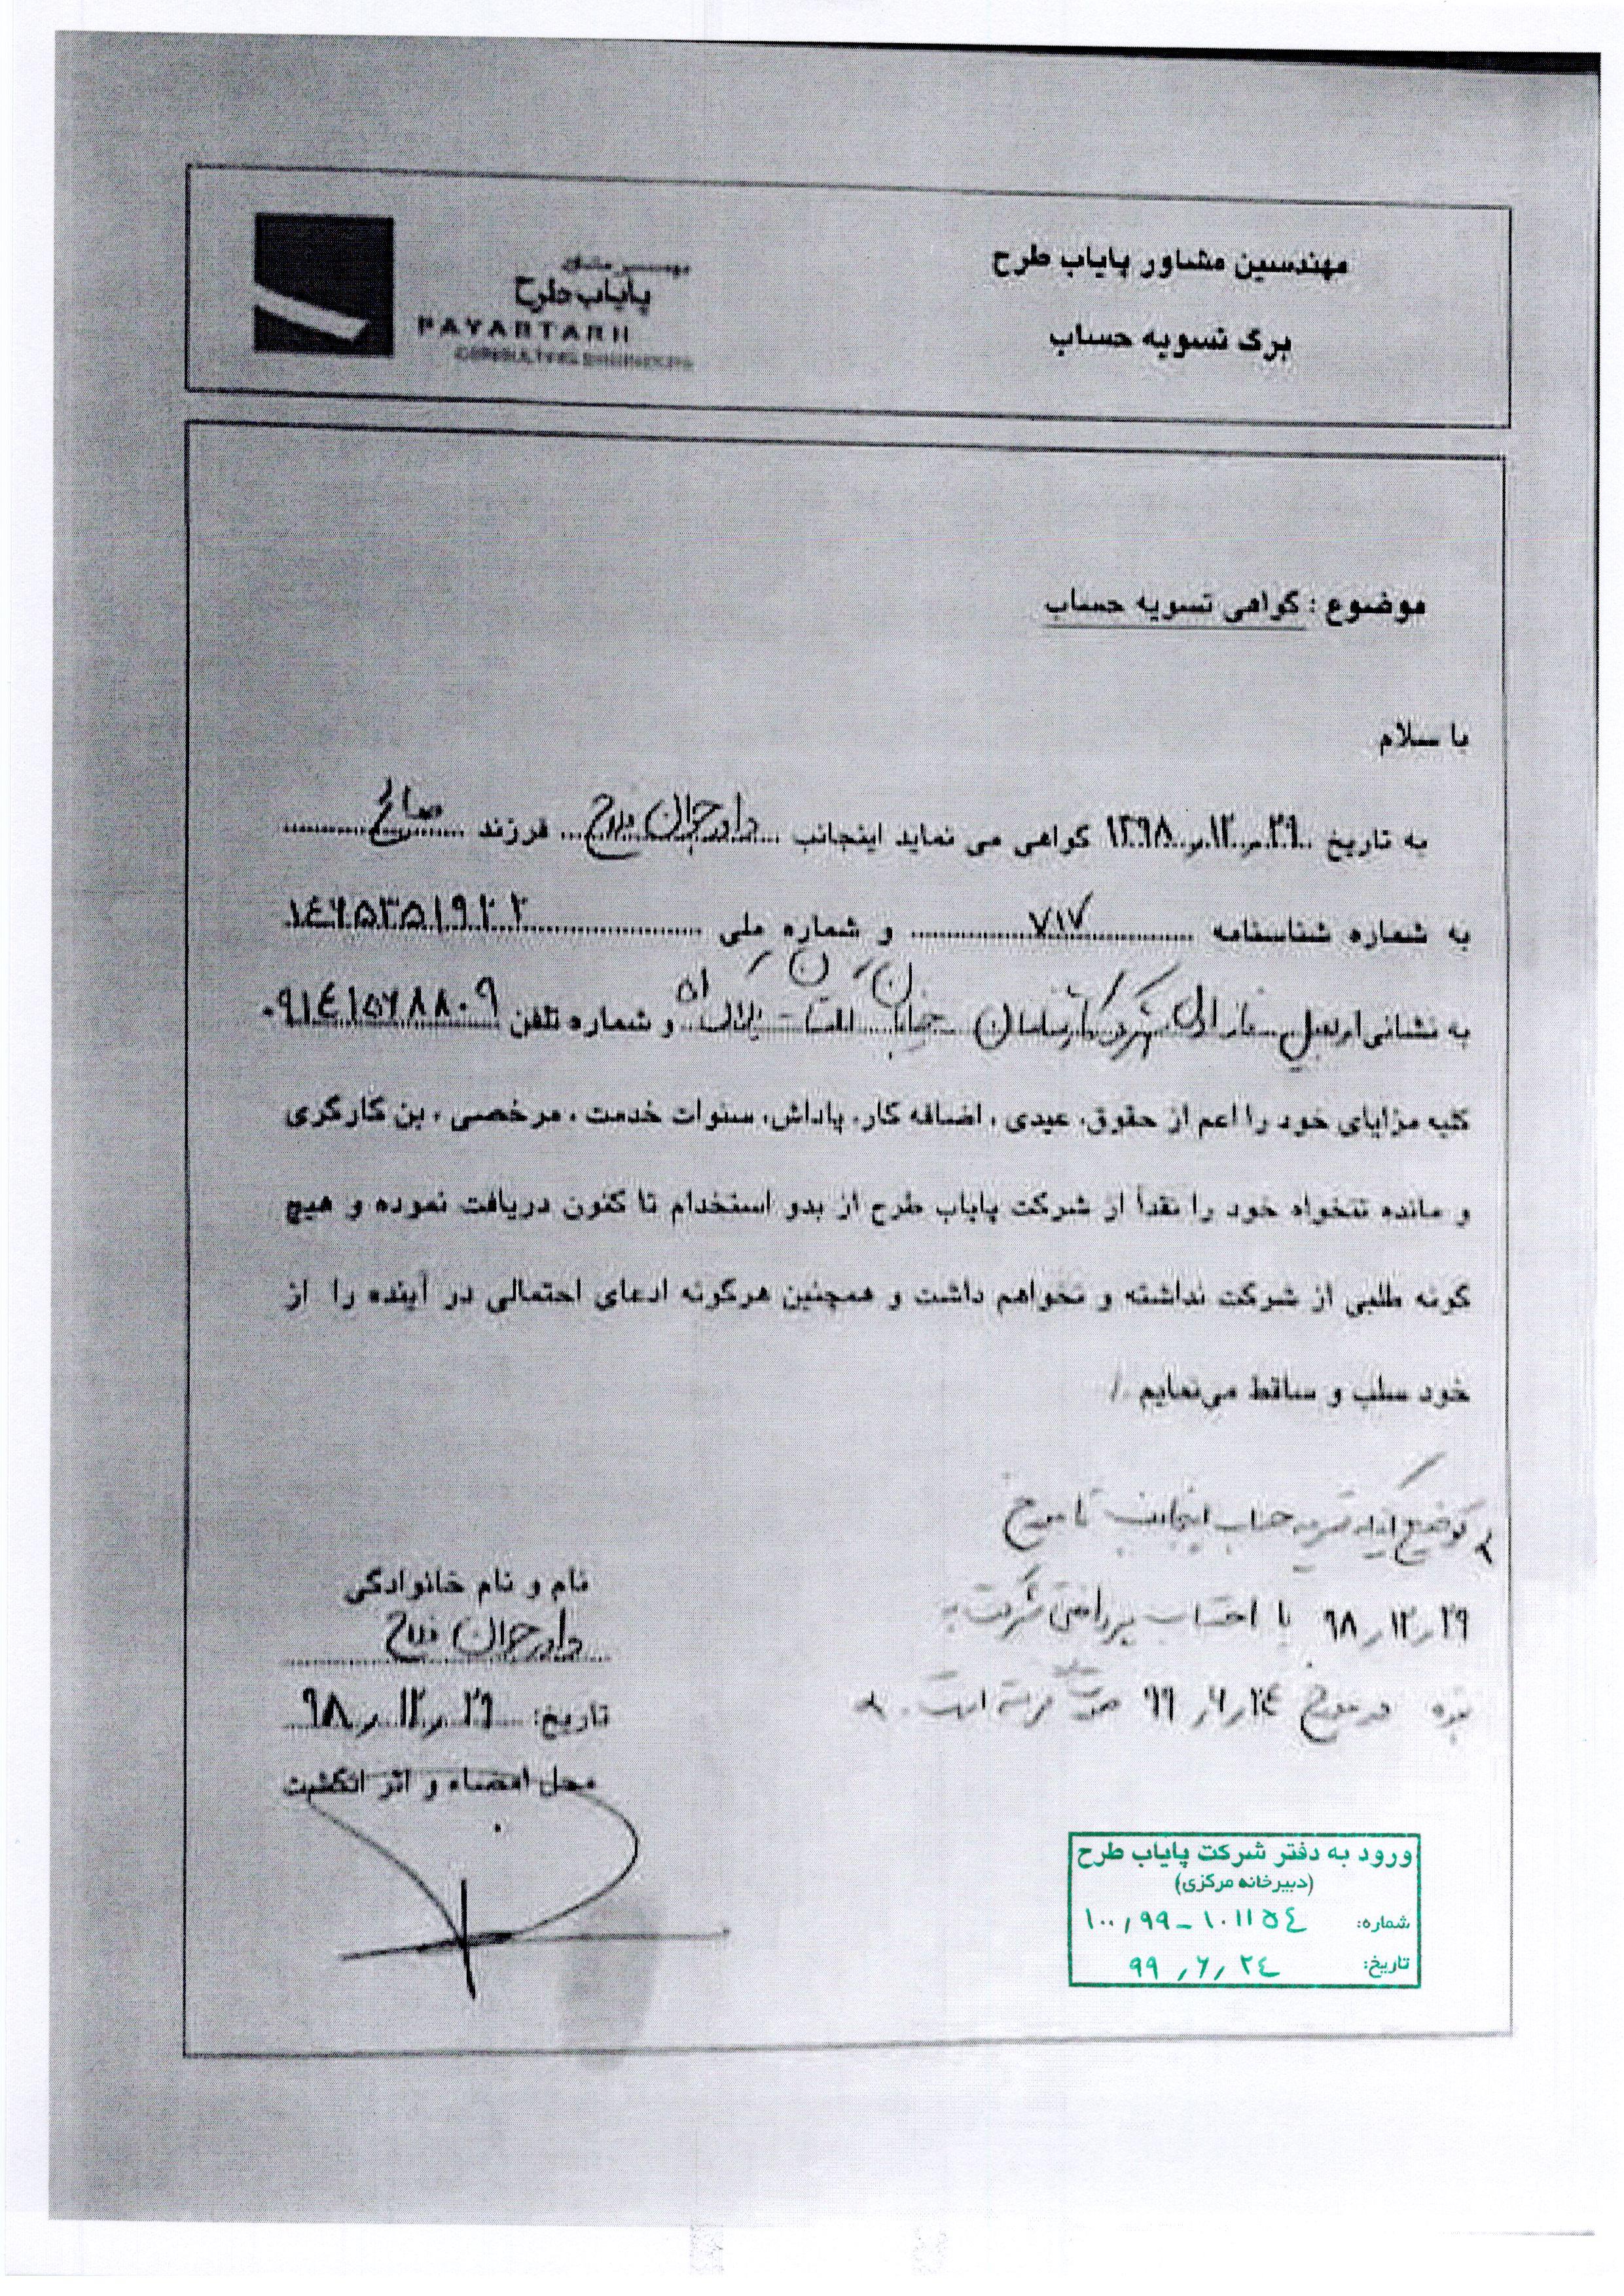 مهندسین مشاور پایاب طرح
برگ تسویه حساب
مهندسین مشاور
پایاب طرح
PAYABTARH
CONSULTING ENGINEERS
موضوع : گواهی تسویه حساب
با سلام
به تاریخ ۱۳۹۸/۱۲/۲۹ گواهی می نماید اینجانب داور جوان فلاح فرزند صالح
به شماره شناسنامه ۷۱۷ و شماره ملی
به نشانی اردبیل شهرک کارشناسان خیابان و شماره تلفن ۰۹۱۴۱۵۶۸۸۰۹
کلیه مزایای خود را اعم از حقوق، عیدی، اضافه کار، پاداش، سنوات خدمت، مرخصی، بن کارگری
و مانده تنخواه خود را نقداً از شرکت پایاب طرح از بدو استخدام تا کنون دریافت نموده و هیچ
گونه طلبی از شرکت نداشته و نخواهم داشت و همچنین هرگونه ادعای احتمالی در آینده را از
خود سلب و ساقط می‌نمایم /
توضیح اینکه تسویه حساب اینجانب تا مورخ
۹۸/۱۲/۲۹ با احتساب پرداختی شرکت به
بنده در مورخ ۹۹/۶/۲۴ صورت گرفته است.
نام و نام خانوادگی
داور جوان فلاح
تاریخ: ۹۸/۱۲/۲۹
محل امضاء و اثر انگشت
ورود به دفتر شرکت پایاب طرح
(دبیرخانه مرکزی)
شماره: ۱۰۰/۹۹-۱۰۱۱۵۴
تاریخ: ۹۹/۶/۲۴